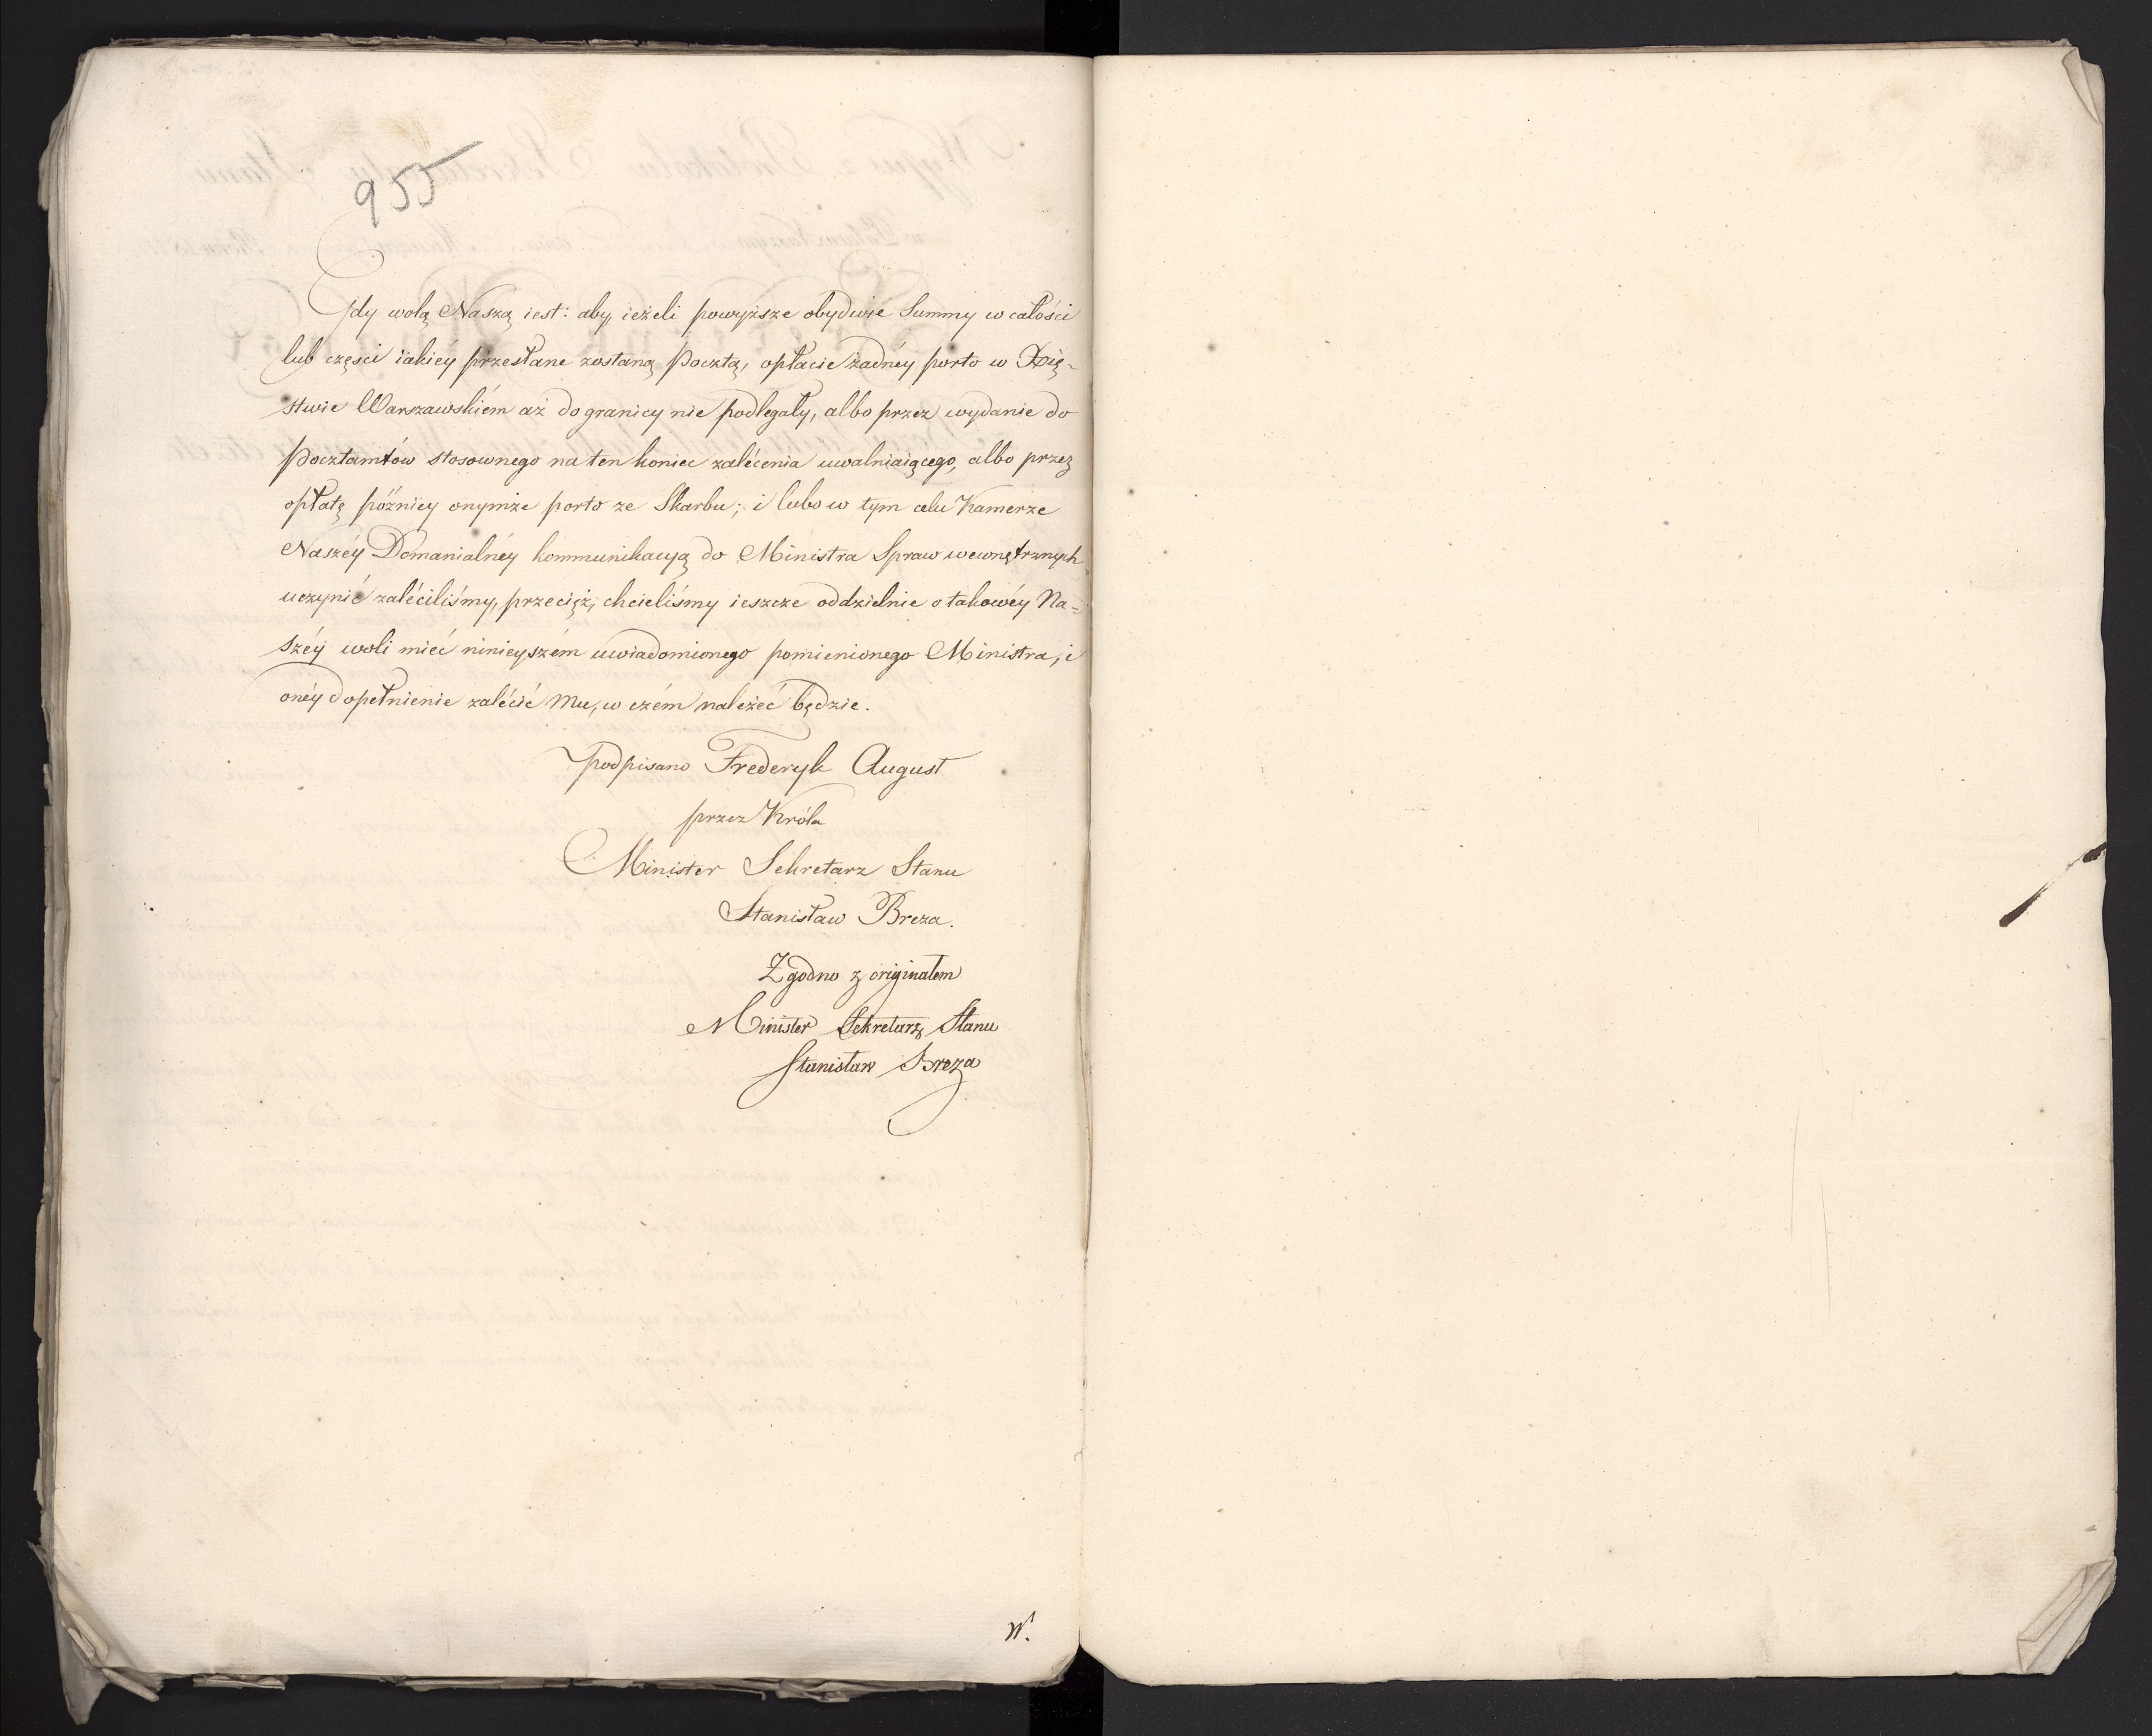 955
Gdy wolą Naszą iest: aby, ieżeli powyższe obydwie Summy w całości
lub częsci iakiéy przesłane zostaną Pocztą, opłacie żadnéy porto w Xię-
stwie Warszawskiém aż do granicy nie podlegały, albo przez wydanie do
Pocztamtów stosownego na ten koniec zalécenia uwalniaiącego, albo przez
opłatę późniey onymże porto ze Skarbu; i lubo w tym celu Kamerze
Naszéy Domanialnéy kommunikacyą do Ministra Spraw wewnętrznych
uczynić zaléciliśmy, przecięż, chcieliśmy ieszcze oddzielnie o takowéy Na=
széy woli mieć ninieyszém uwiadomionego pomienionego Ministra, i
onéy dopełnienie zalécić mu, w czém należeć będzie.
podpisano Frederyk August
przez Króla
Minister Sekretarz Stanu
Stanisław Breza.
Zgodno z originałem
Minister Sekretarz Stanu
Stanisław Breza